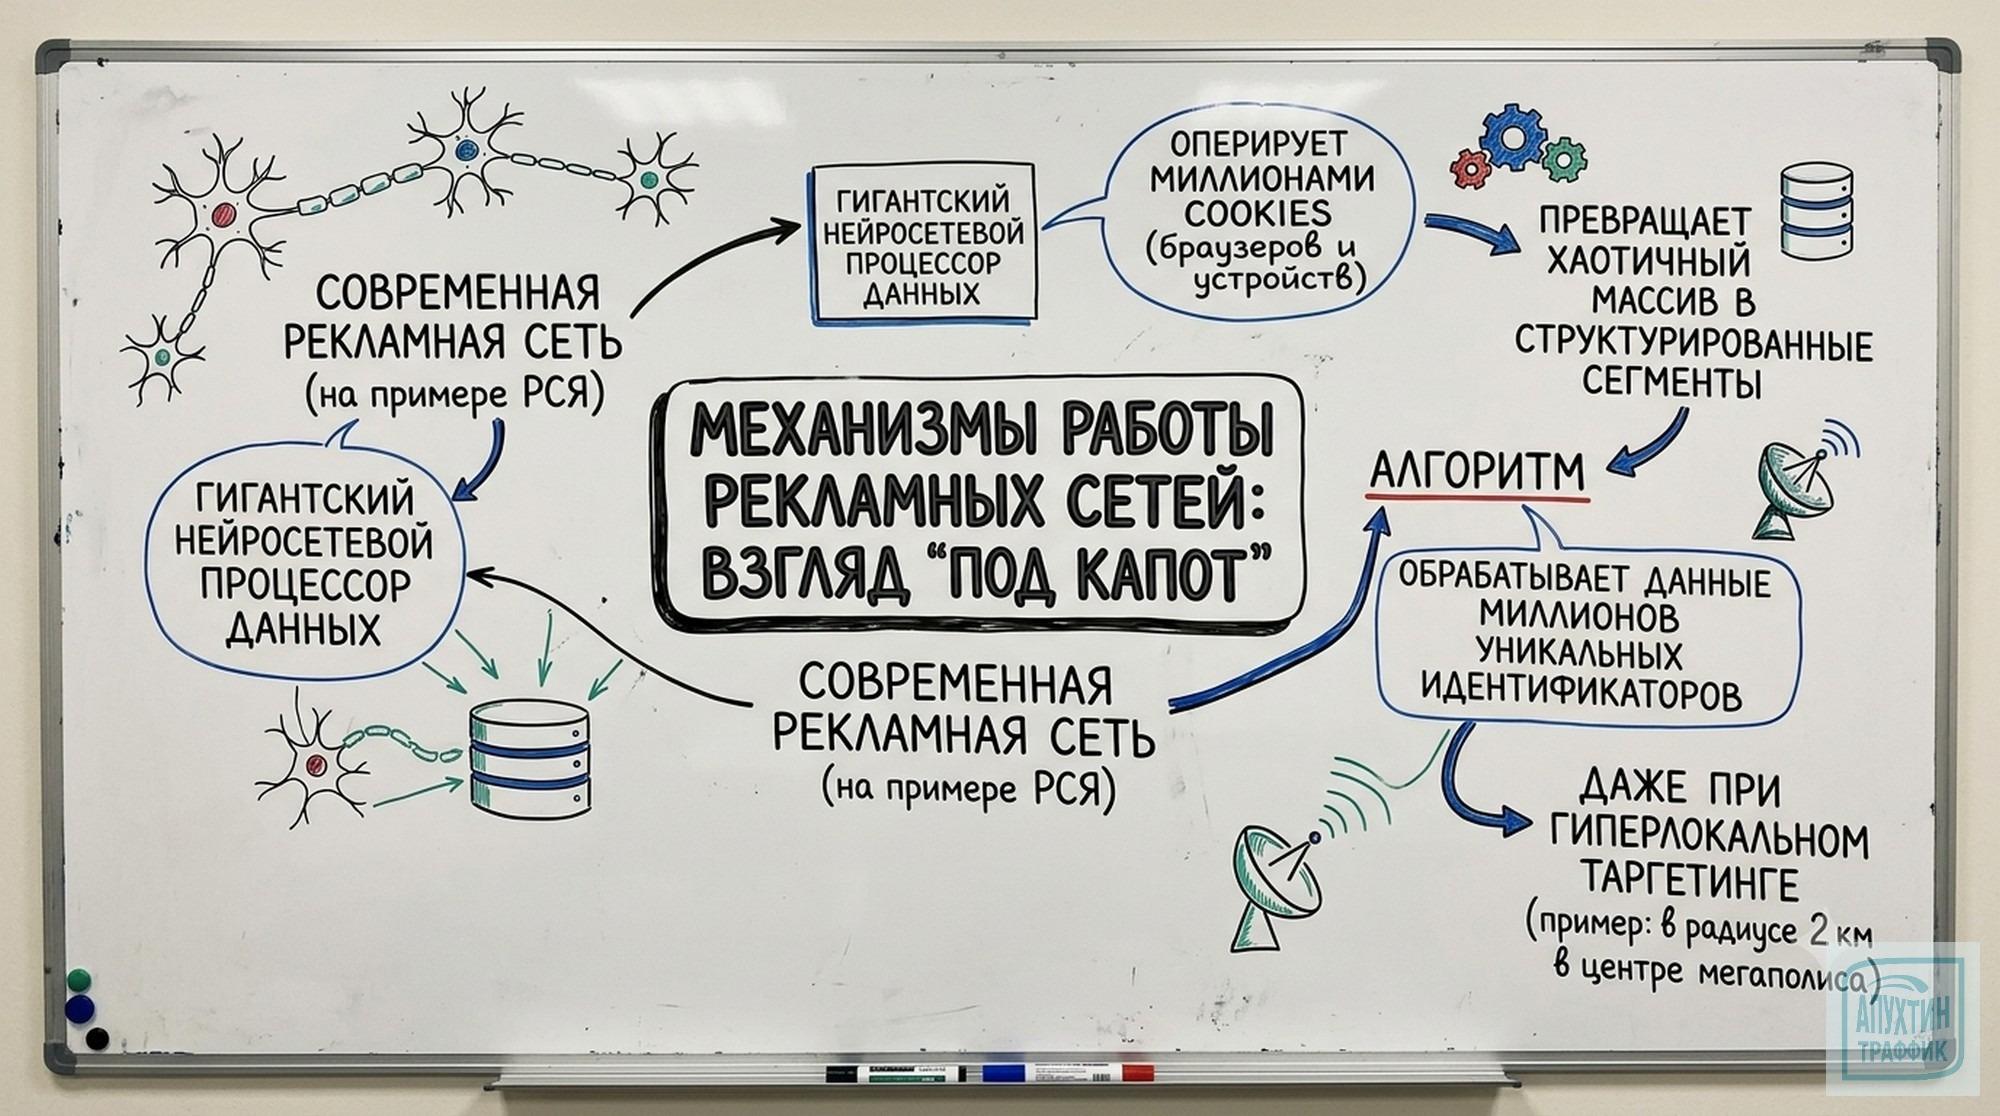 СОВРЕМЕННАЯ
РЕКЛАМНАЯ СЕТЬ
(на примере РСЯ)
ГИГАНТСКИЙ
НЕЙРОСЕТЕВОЙ
ПРОЦЕССОР
ДАННЫХ
ОПЕРИРУЕТ
МИЛЛИОНАМИ
COOKIES
(браузеров и
устройств)
ПРЕВРАЩАЕТ
ХАОТИЧНЫЙ
МАССИВ В
СТРУКТУРИРОВАННЫЕ
СЕГМЕНТЫ
МЕХАНИЗМЫ РАБОТЫ
РЕКЛАМНЫХ СЕТЕЙ:
ВЗГЛЯД “ПОД КАПОТ”
ГИГАНТСКИЙ
НЕЙРОСЕТЕВОЙ
ПРОЦЕССОР
ДАННЫХ
АЛГОРИТМ
ОБРАБАТЫВАЕТ ДАННЫЕ
МИЛЛИОНОВ
УНИКАЛЬНЫХ
ИДЕНТИФИКАТОРОВ
СОВРЕМЕННАЯ
РЕКЛАМНАЯ СЕТЬ
(на примере РСЯ)
ДАЖЕ ПРИ
ГИПЕРЛОКАЛЬНОМ
ТАРГЕТИНГЕ
(пример: в радиусе 2 км
в центре мегаполиса)
АПУХТИН
ТРАФФИК